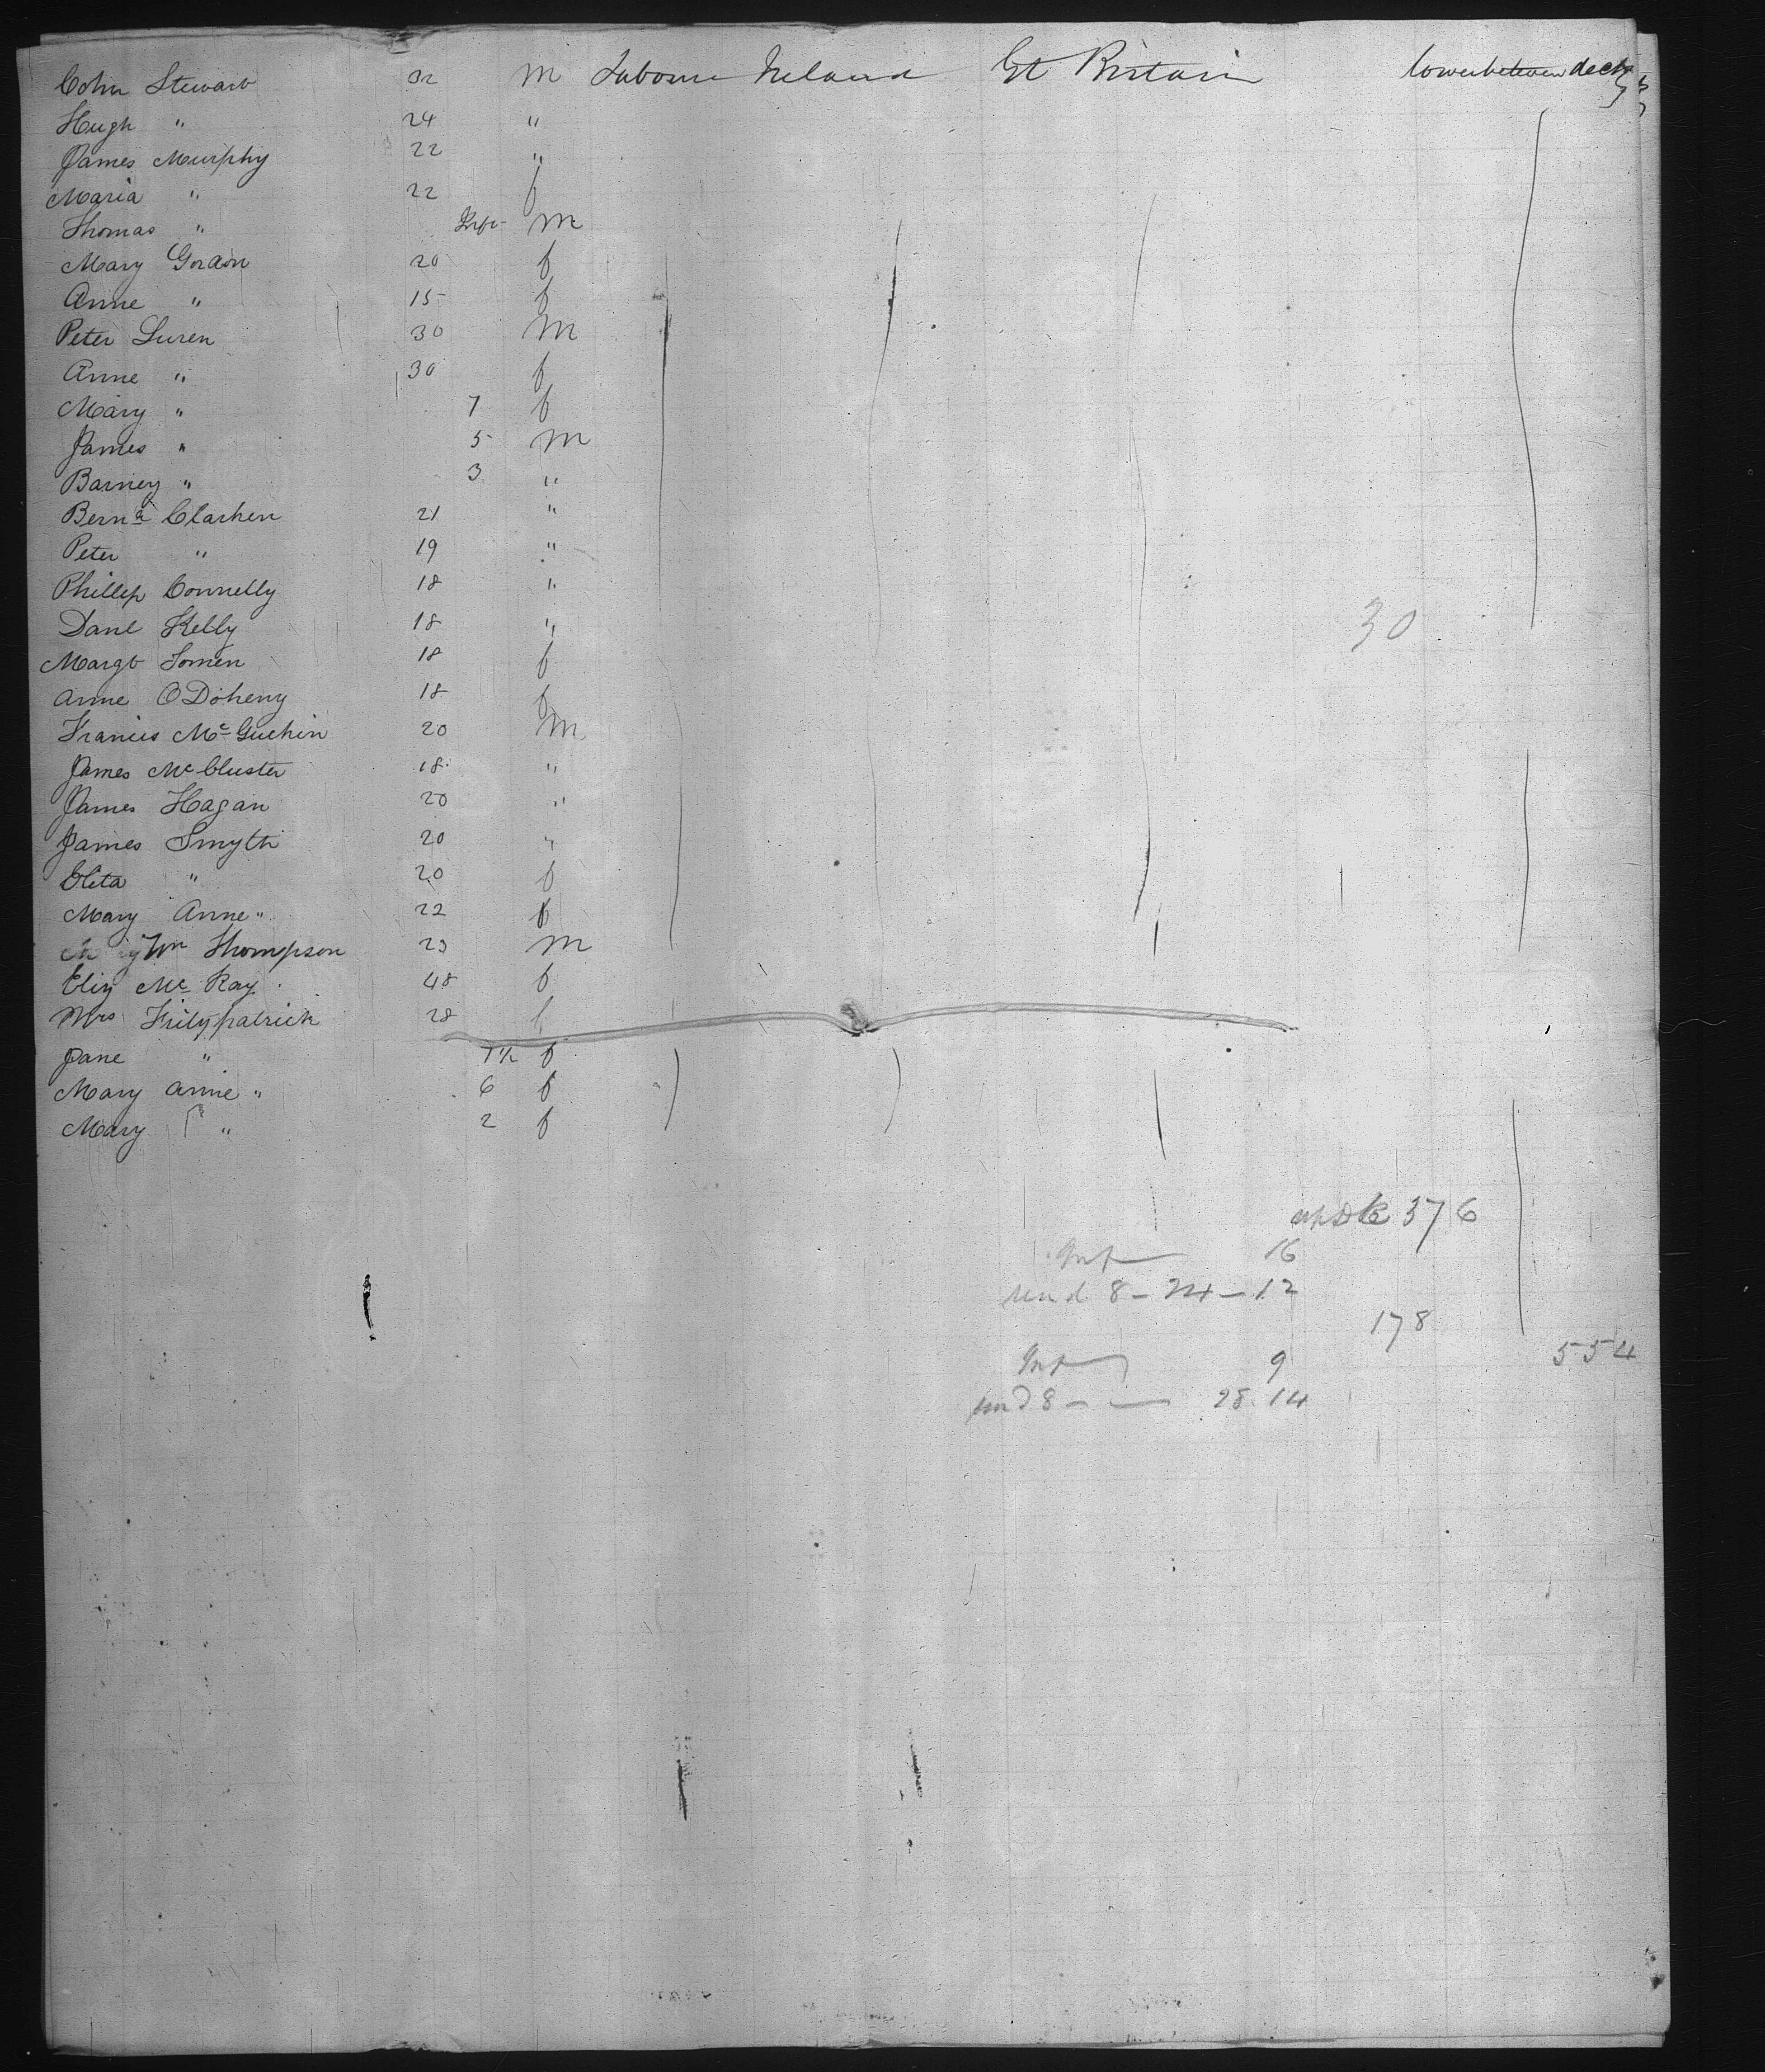 John Stewart 32 m Labourer Ireland Gt Britain lower between decks
Hugh " 24 "
James Murphy 22 "
Maria " 22 f
Thomas " Inft m
Mary Gordon 20 f
Anne " 15 f
Peter Luren 30 m
Anne " 30 f
Mary " 7 f
James " 5 m
Barney " 3 "
Bernd Clarken 21 "
Peter " 19 "
Phillip Connelly 18 "
Danl Kelly 18 " 30
Margt Tomen 18 f
Anne O Doheny 18 f
Francis Mc Guckin 20 m
James Mc Cluster 18 "
James Hagan 20 "
James Smyth 20 "
" 20 f
Mary Anne " 22 f
Wm Thompson 23 m
Eliz Mc Kay 48 f
Mrs Fitzpatrick 28 f
Jane " f
Mary Anne " 6 f
Mary " 2 f
up Dk 376
Inf 16
und 8 - 24 - 12
178
Inf 9 554
und 8 - 28 14